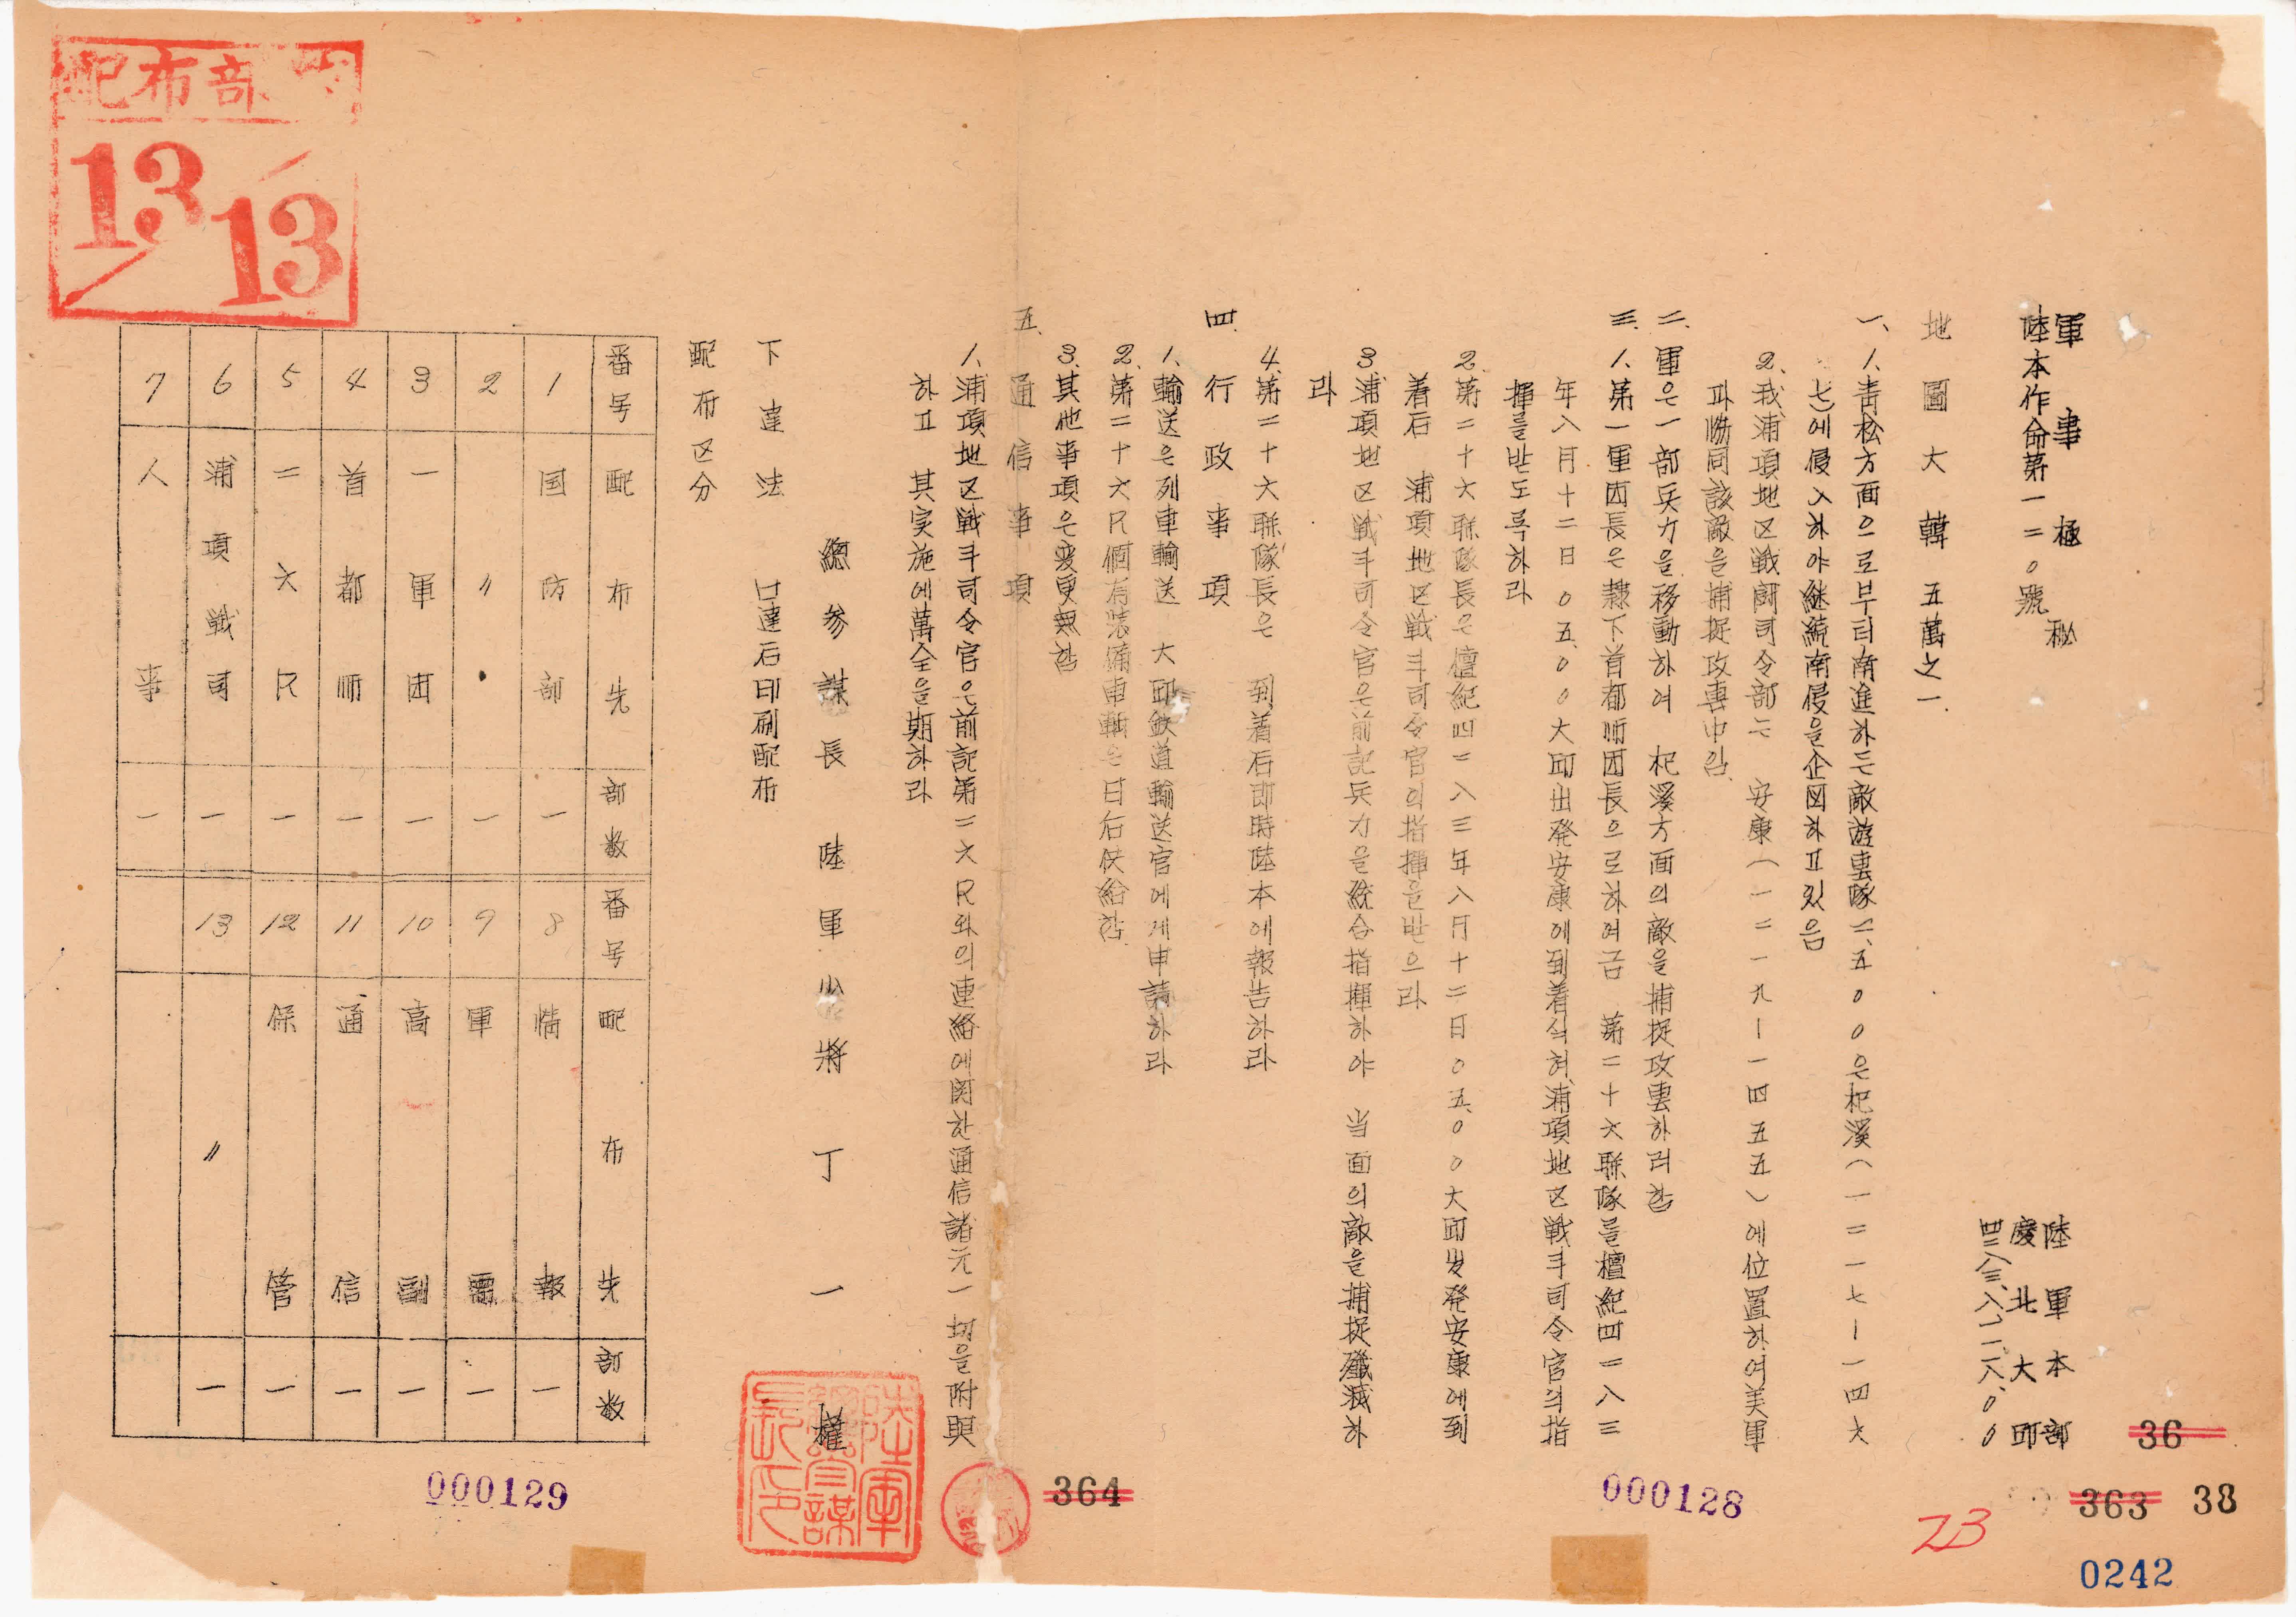 軍事極秘
陸本作命第一二〇號
陸軍本部
慶北大邱
四二八三、八、一二、八、〇〇
地圖 大韓 五萬之一
一、1.靑松方面으로부터南進하는敵遊擊隊二、五〇〇은杞溪(一二一七-一四六
七)에侵入하야継続南侵을企図하고있음
2.我浦項地区戦闘司令部는 安康(一二一九-一四五五)에位置하여美軍
과協同該敵을捕捉攻擊中임
二、軍은一部兵力을移動하여 杞溪方面의敵을捕捉攻擊하려함
三、1.第一軍団長은隷下首都師団長으로하여금 第二十六聯隊를檀紀四二八三
年八月十二日〇五、〇〇大邱出発安康에到着식혀浦項地区戦斗司令官의指
揮를받도록하라
2.第二十六聯隊長은檀紀四二八三年八月十二日〇五、〇〇大邱出発安康에到
着后 浦項地区戦斗司令官의指揮을받으라
3.浦項地区戦斗司令官은前記兵力을統合指揮하야 当面의敵을捕捉殲滅하
라
4.第二十六聯隊長은 到着后即時陸本에報告하라
四、行政事項
1.輸送은列車輸送 大邱鉄道輸送官에게申請하라
2.第二十六R個有装備車輌은日后供給함
3.其他事項은変更無함
五、通信事項
1.浦項地区戦斗司令官은前記第二六R와의連絡에関한通信諸元一切을附與
하고 其実施에萬全을期하라
總參謀長 陸軍少將 丁一權
陸軍總參謀長印
下達法 口達后印刷配布
配布区分
番号 配布先 部数 番号 配布先 部数
1 国防部 一 8 情報 一
2 〃 一 9 軍需 一
3 一軍団 一 10 高副 一
4 首都师 一 11 通信 一
5 二六R 一 12 保管 一
6 浦項戦司 一 13 〃 一
7 人事 一
配布部
13/13
36
363
38
364
000128
000129
23
0242